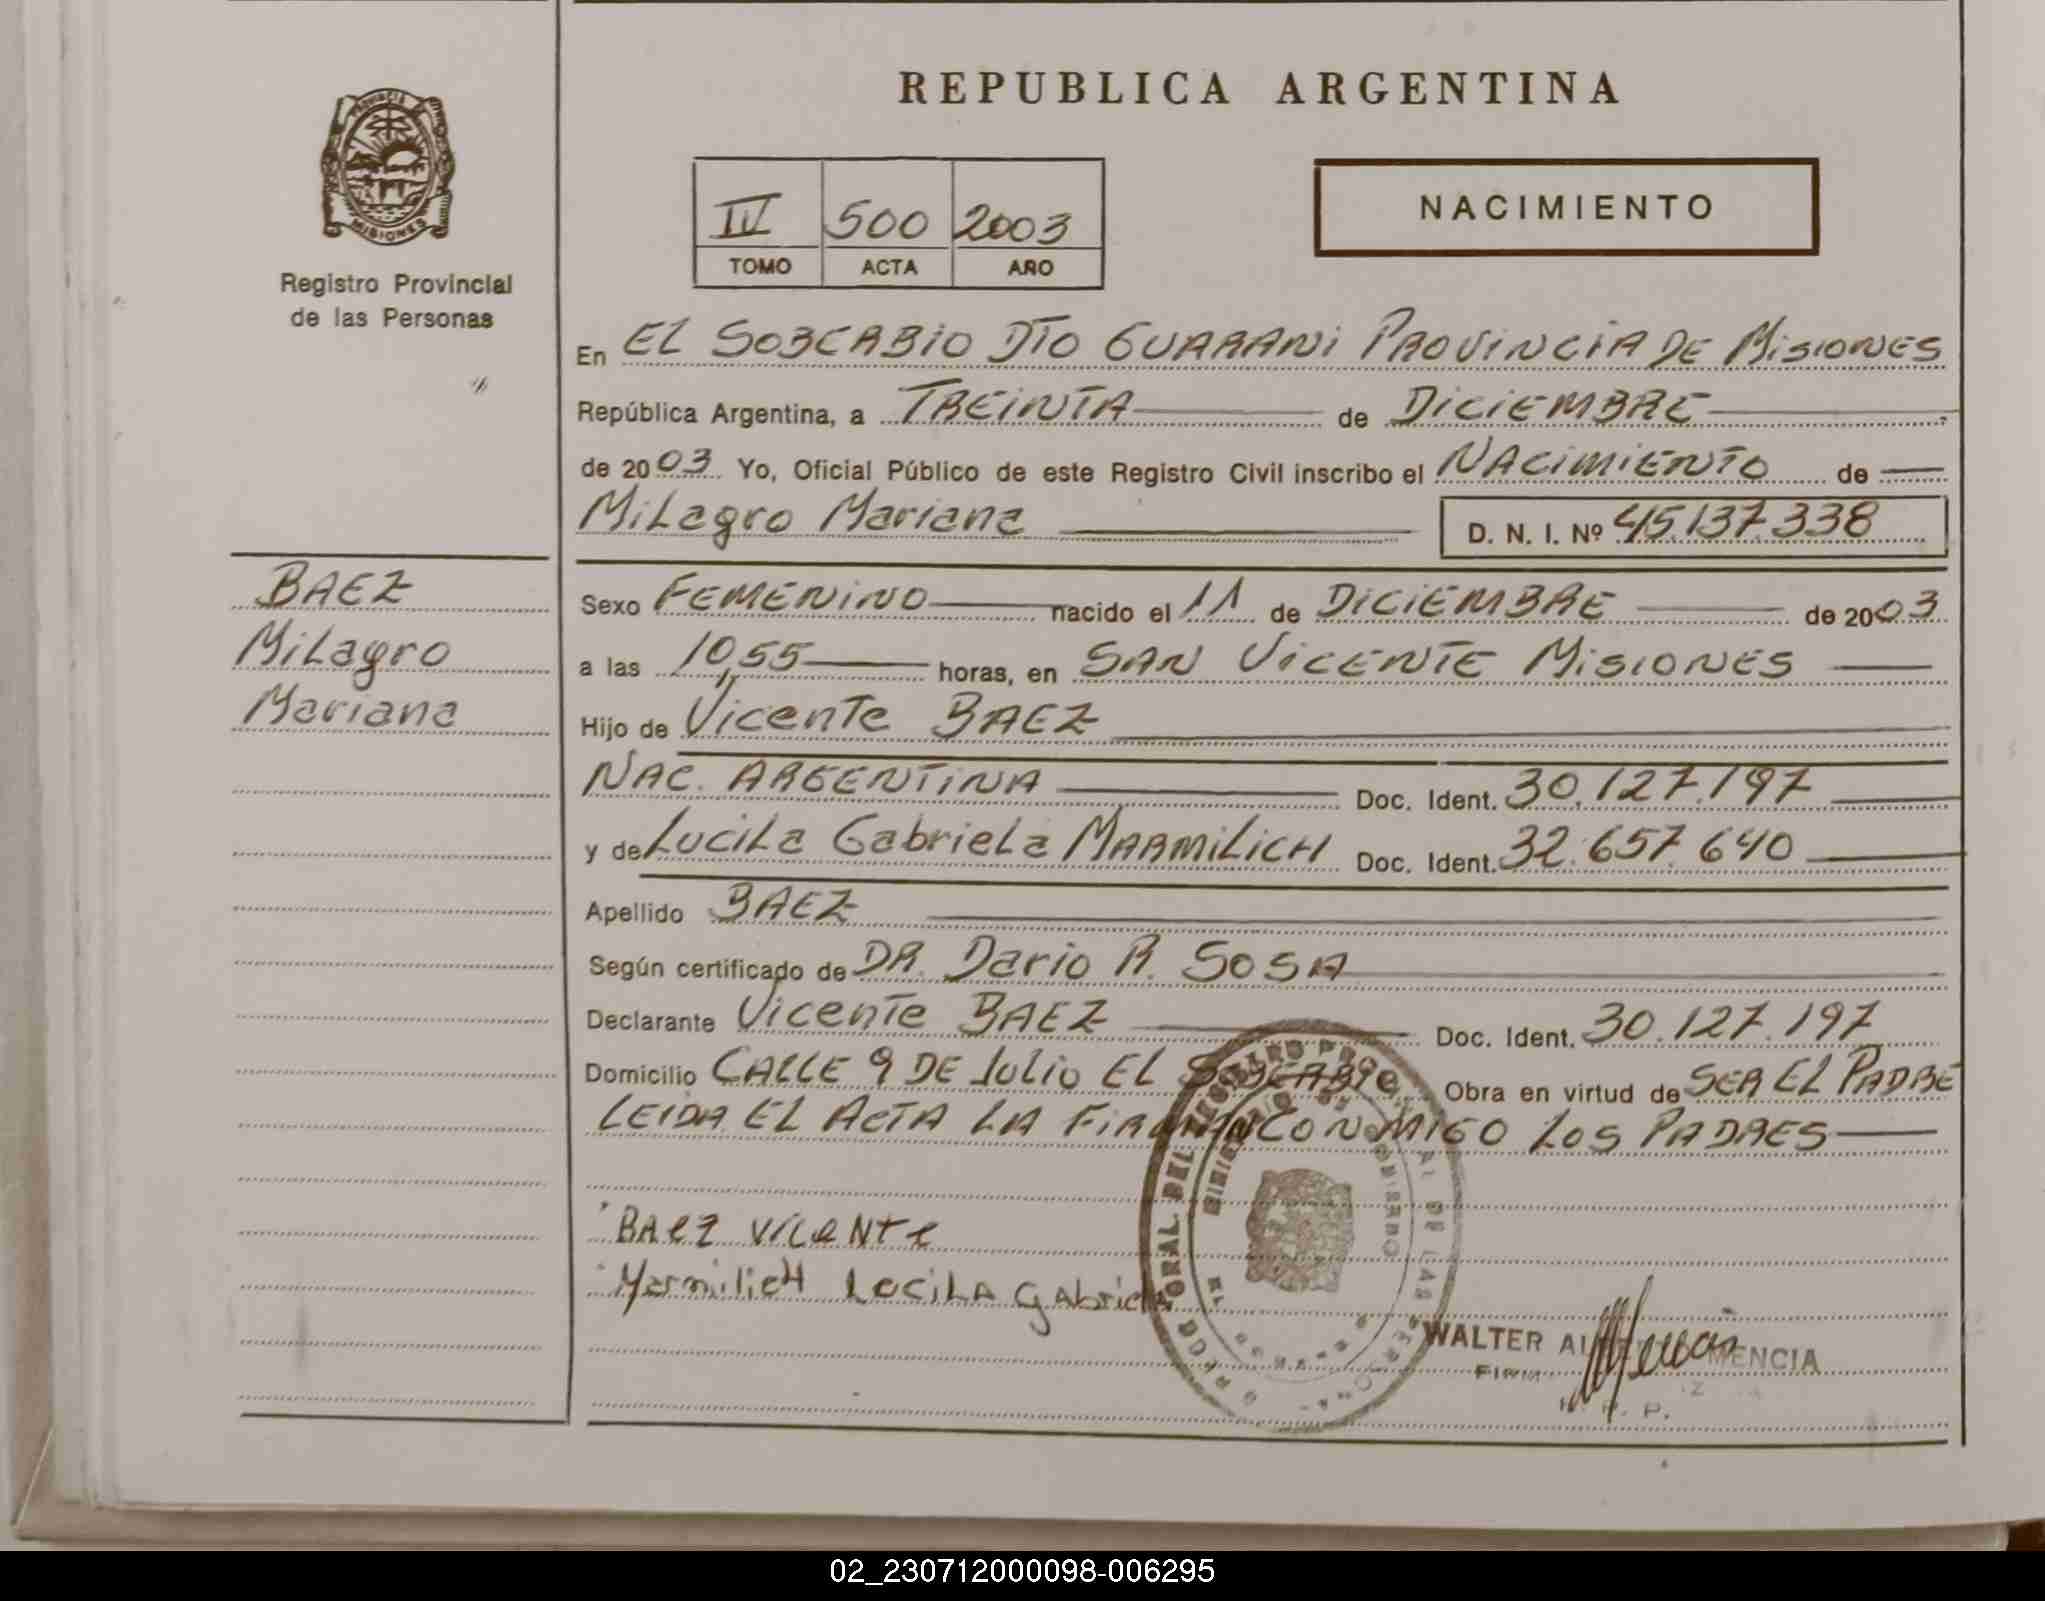 REPUBLICA ARGENTINA
PROVINCIA DE MISIONES
Registro Provincial
de las Personas
IV 500 2003
TOMO ACTA AÑO
NACIMIENTO
En EL SOBERBIO DTO GUARANI PROVINCIA DE MISIONES
República Argentina, a TREINTA de DICIEMBRE
de 2003 Yo, Oficial Público de este Registro Civil inscribo el NACIMIENTO de
MiLagro Mariana D. N. I. Nº 45.137.338
BAEZ
MiLagro
Mariana
Sexo FEMENINO nacido el 11 de DICIEMBRE de 2003
a las 10,55 horas, en SAN VICENTE MISIONES
Hijo de Vicente BAEZ
NAC. ARGENTINA Doc. Ident. 30.127.197
y de LuciLa GabrieLa MARMILICH Doc. Ident. 32.657.640
Apellido BAEZ
Según certificado de DR. Dario R. SOSA
Declarante Vicente BAEZ Doc. Ident. 30.127.197
Domicilio CALLE 9 DE Julio EL SOBERBIO Obra en virtud de SER EL PADRE
LEIDA EL ACTA LA FIRMAN CONMIGO LOS PADRES
BAEZ VICENTE
MarmilicH LuciLA Gabriela
WALTER MENCIA
02_230712000098-006295